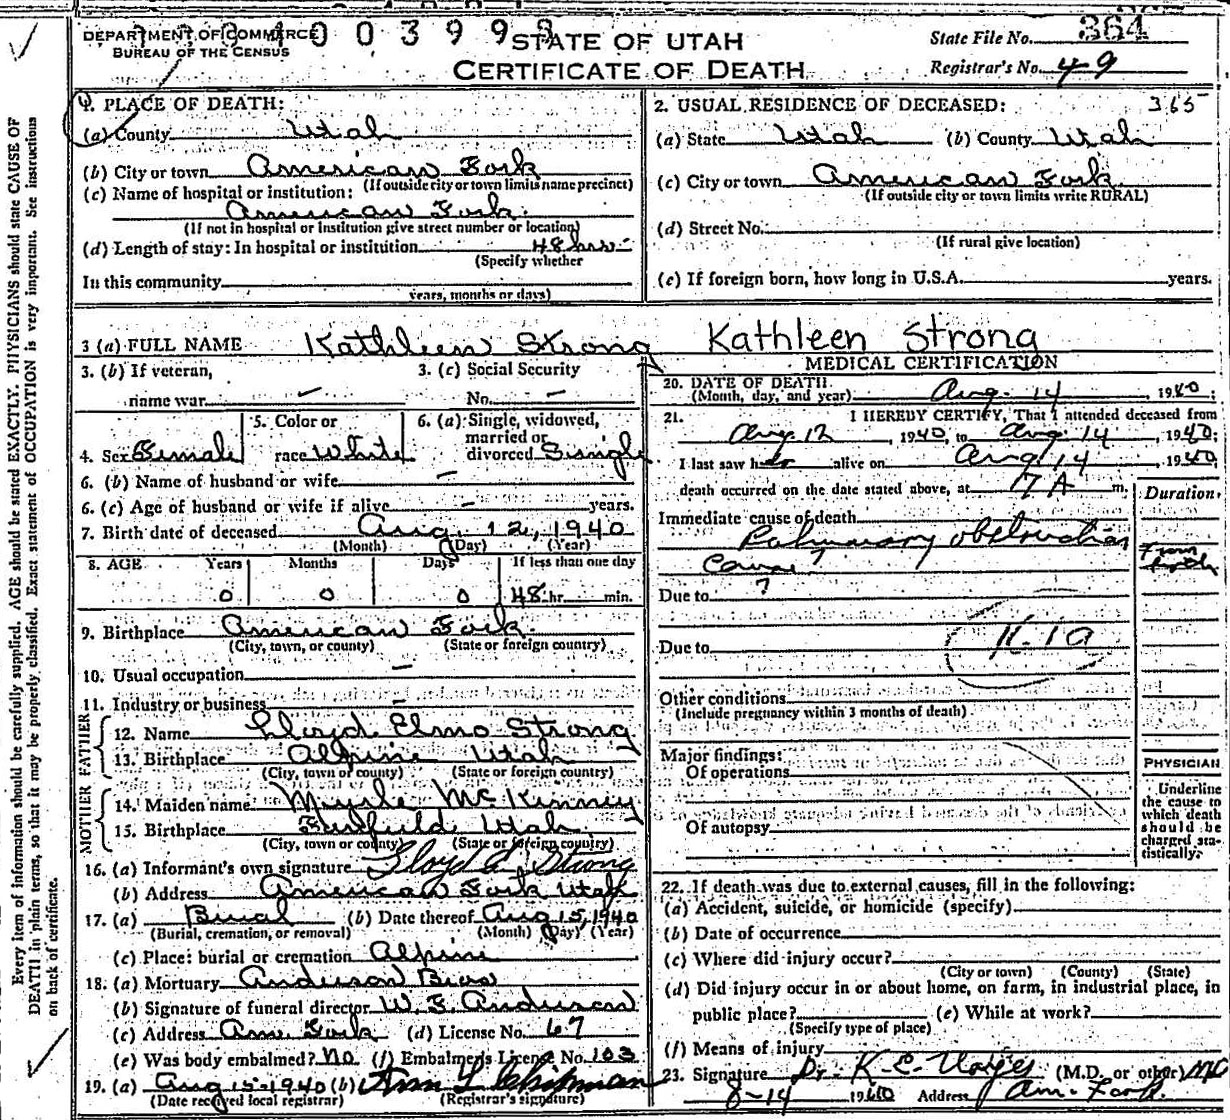 DEPARTMENT OF COMMERCE
BUREAU OF THE CENSUS
STATE OF UTAH
CERTIFICATE OF DEATH
State File No. 364
Registrar's No. 49
Every item of information should be carefully supplied. AGE should be stated EXACTLY. PHYSICIANS should state CAUSE OF
DEATH in plain terms, so that it may be properly classified. Exact statement of OCCUPATION is very important. See instructions
on back of certificate.
1. PLACE OF DEATH:
(a) County Utah
(b) City or town American Fork
(If outside city or town limits name precinct)
(c) Name of hospital or institution:
American Fork
(If not in hospital or institution give street number or location)
(d) Length of stay: In hospital or institution 48 hrs
(Specify whether
In this community
years, months or days)
2. USUAL RESIDENCE OF DECEASED: 365
(a) State Utah (b) County Utah
(c) City or town American Fork
(If outside city or town limits write RURAL)
(d) Street No.
(If rural give location)
(e) If foreign born, how long in U.S.A. years.
3 (a) FULL NAME Kathleen Strong Kathleen Strong
3. (b) If veteran,
name war –
3. (c) Social Security
No. –
4. Sex Female
5. Color or
race White
6. (a) Single, widowed,
married or
divorced Single
6. (b) Name of husband or wife –
6. (c) Age of husband or wife if alive – years.
7. Birth date of deceased Aug. 12, 1940
(Month) (Day) (Year)
8. AGE Years Months Days If less than one day
0 0 0 48 hr. min.
9. Birthplace American Fork
(City, town, or county) (State or foreign country)
10. Usual occupation –
11. Industry or business –
FATHER
12. Name Lloyd Elmo Strong
13. Birthplace Alpine Utah
(City, town or county) (State or foreign country)
MOTHER
14. Maiden name Myrle McKinney
15. Birthplace Fairfield Utah
(City, town or county) (State or foreign country)
16. (a) Informant's own signature Lloyd E. Strong
(b) Address American Fork Utah
17. (a) Burial (b) Date thereof Aug 15, 1940
(Burial, cremation, or removal) (Month) (Day) (Year)
(c) Place: burial or cremation Alpine
18. (a) Mortuary Anderson Bros
(b) Signature of funeral director W. E. Anderson
(c) Address Am. Fork (d) License No. 67
(e) Was body embalmed? No (f) Embalmer's License No. 103
19. (a) Aug 15-1940 (b) Ann L Chipman
(Date received local registrar) (Registrar's signature)
MEDICAL CERTIFICATION
20. DATE OF DEATH
(Month, day, and year) Aug. 14, 1940;
21. I HEREBY CERTIFY, That I attended deceased from
Aug. 12, 1940, to Aug 14, 1940;
I last saw her alive on Aug 14, 1940
death occurred on the date stated above, at 7 A m.
Duration
Immediate cause of death
Pulmonary obstruction
Cause ?
From
birth
Due to ?
Due to
Other conditions
(Include pregnancy within 3 months of death)
Major findings:
Of operations
Of autopsy
PHYSICIAN
Underline
the cause to
which death
should be
charged sta-
tistically.
22. If death was due to external causes, fill in the following:
(a) Accident, suicide, or homicide (specify)
(b) Date of occurrence
(c) Where did injury occur?
(City or town) (County) (State)
(d) Did injury occur in or about home, on farm, in industrial place, in
public place? (e) While at work?
(Specify type of place)
(f) Means of injury
23. Signature Dr. K. E. (M.D. or other) MD
8-14 1940 Address Am. Fork